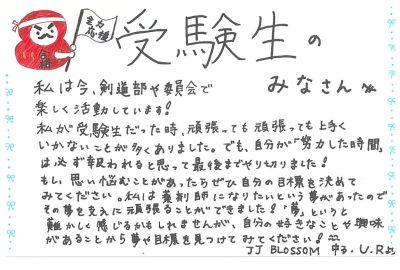 全力応援
合格
受験生の
みなさんへ
私は今、剣道部や委員会で
楽しく活動しています!
私が受験生だった時、頑張っても頑張っても上手く
いかないことが多くありました。でも、自分が「努力した時間」
は必ず報われると思って最後までやり切りました!
もし、思い悩むことがあったらぜひ自分の目標を決めて
みてください。私は薬剤師になりたいという夢があったので
その夢を支えに頑張ることができました!「夢」というと
難かしく感じるかもしれませんが、自分の好きなことや興味
があることから夢や目標を見つけてみてください!
JJ BLOSSOM 中3. U.R